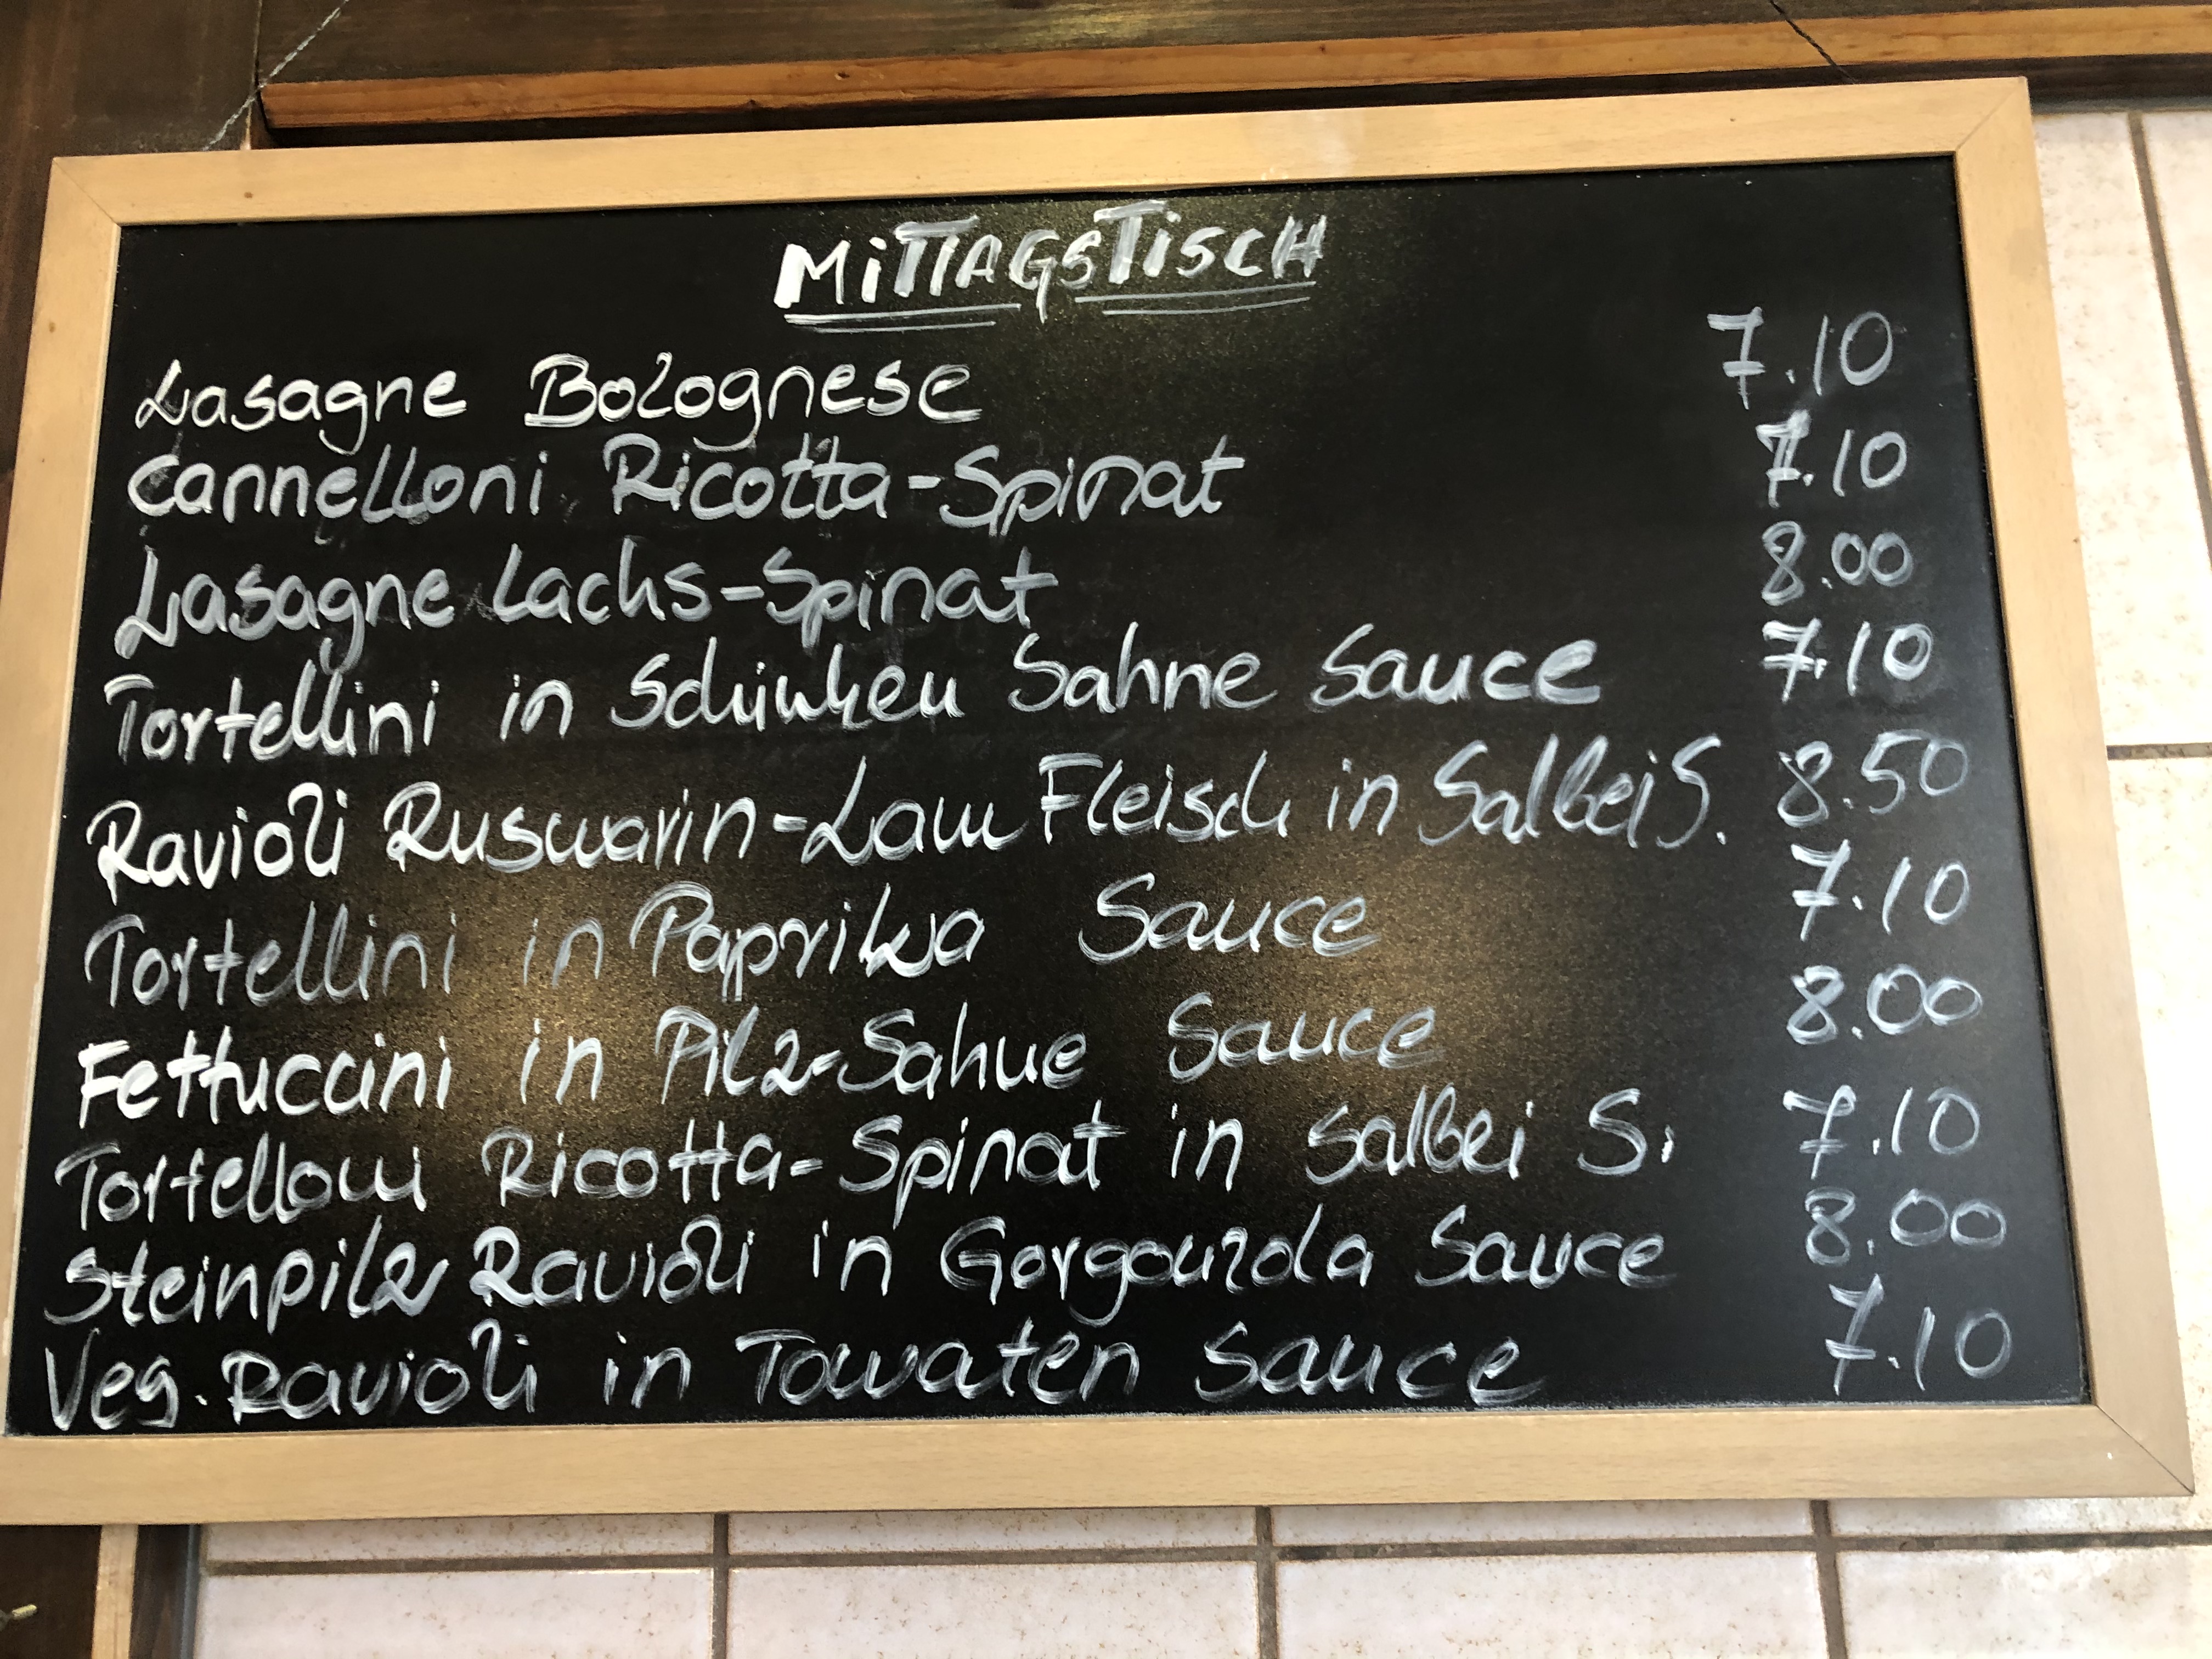 MiTTAGSTiSCH
Lasagne Bolognese 7.10
Cannelloni Ricotta-Spinat 7.10
Lasagne Lachs-Spinat 8.00
Tortellini in Schinken Sahne Sauce 7.10
Ravioli Rusmarin-Lam Fleisch in Salbei S. 8.50
Tortellini in Paprika Sauce 7.10
Fettuccini in Pilz-Sahne Sauce 8.00
Tortelloni Ricotta-Spinat in Salbei S. 7.10
Steinpilz Ravioli in Gorgonzola Sauce 8.00
Veg. Ravioli in Tomaten Sauce 7.10